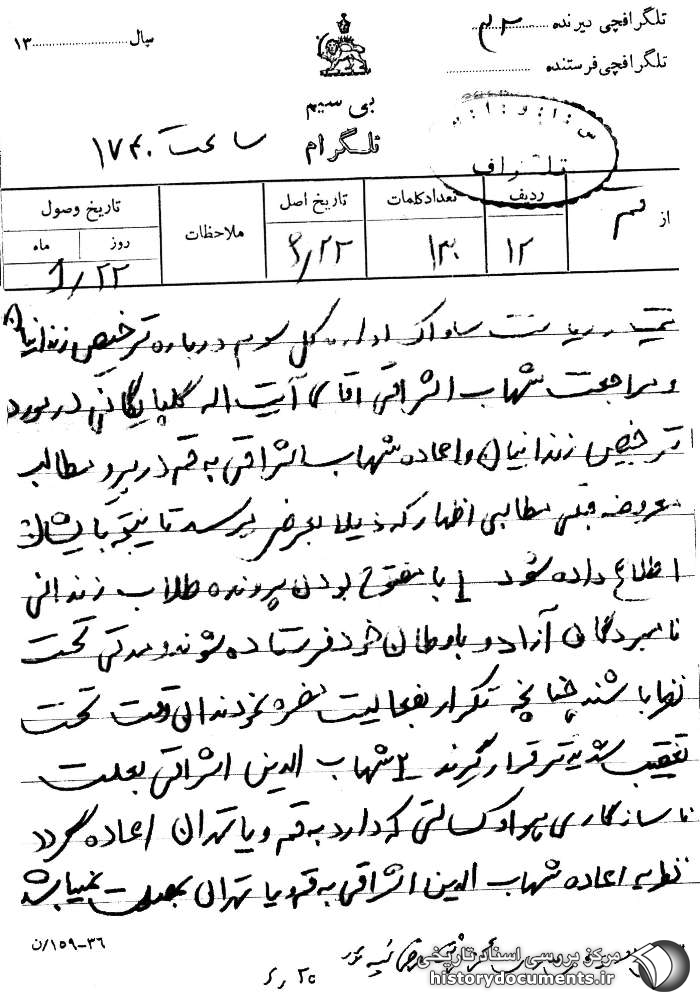 تلگرافچی گیرنده
تلگرافچی فرستنده
سال ۱۳
بی سیم
تلگرام
ساعت ۱۷۴۰
از قم
ردیف ۱۲
تعدادکلمات ۱۳۰
تاریخ اصل ۶/۲۲
ملاحظات
تاریخ وصول
روز ماه
۶/۲۲
ریاست ساواک اداره کل سوم درباره ترخیص زندانیان
و مراجعت شهاب اشراقی آقای آیت اله گلپایگانی در مورد
ترخیص زندانیان و اعاده شهاب اشراقی به قم در پیرو مطالب
معروضه قبلی مطالبی اظهار که ذیلا بعرض میرسد تا نتیجه بایشان
اطلاع داده شود ۱ با مفتوح بودن پرونده طلاب زندانی
نامبردگان آزاد و باوطان خود فرستاده شوند و مدتی تحت
نظر باشند چنانچه تکرار بفعالیت مضره نمودند آن وقت تحت
تعقیب شدیدتر قرار گیرند ۲ شهاب الدین اشراقی بعلت
ناسازگاری هوا و کسالتی که دارد به قم و یا تهران اعاده گردد
نظریه اعاده شهاب الدین اشراقی به قم و یا تهران بمصلحت نمیباشد
۳۶-۱۵۹/ن
مرکز بررسی اسناد تاریخی
historydocuments.ir